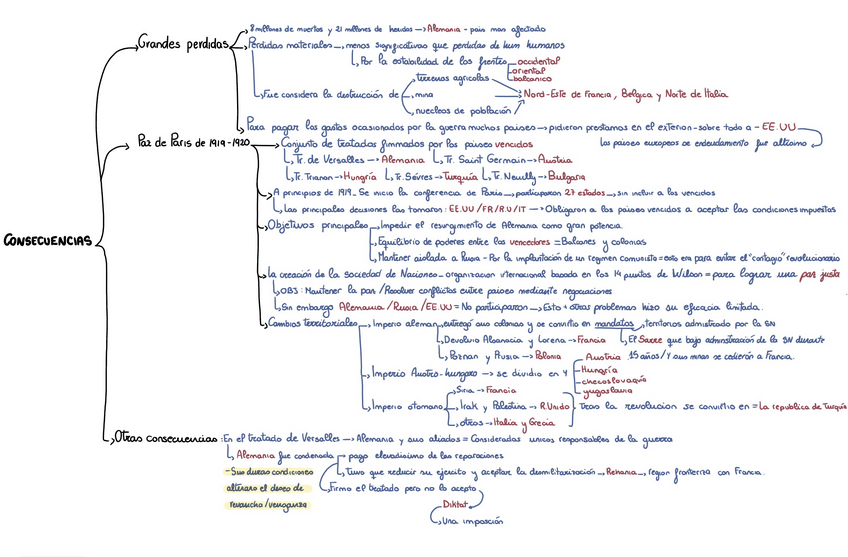 8 millones de muertos y 21 millones de heridos → Alemania - pais mas afectado
Grandes perdidas
Perdidas materiales → menos significativas que perdidas de humanos
Por la estabilidad de los frentes
occidental
oriental
balcanico
terrenos agricolas
Fue considera la destrucción de
mina
Nord-Este de Francia, Belgica y Norte de Italia
nucleos de población
Para pagar los gastos ocasionados por la guerra muchos paises → pidieron prestamos en el exterior - sobre todo a - EE.UU
los paises europeos se endeudamiento fue altisimo
Paz de Paris de 1919-1920
Conjunto de tratados firmados por los paises vencidos
Tr. de Versalles → Alemania
Tr. Saint Germain → Austria
Tr. Trianon → Hungría
Tr. Sévres → Turquía
Tr. Neuilly → Bulgaria
A principios de 1919_ Se inicio la conferencia de Paris → participaron 27 estados → sin incluir a los vencidos
Las principales decisiones las tomaron: EE.UU /FR/R.U/IT → Obligaron a los paises vencidos a aceptar las condiciones impuestas
CONSECUENCIAS
Objetivos principales
Impedir el resurgimiento de Alemania como gran potencia.
Equilibrio de poderes entre los vencedores = Balcanes y colonias
Mantener aislada a Rusia - Por la implantación de un regimen comunista = esto era para evitar el "contagio" revolucionario
la creación de la sociedad de Naciones - organizacion internacional basada en los 14 puntos de Wilson = para lograr una paz justa
OBJ: Mantener la paz /Resolver conflictos entre paises mediante negociaciones
Sin embargo Alemania /Rusia /EE.UU = No participaron → Esto + otras problemas hizo su eficacia limitada.
Cambios territoriales
Imperio aleman
entregó sus colonias y se convirtio en mandatos
territorios admistrado por la SN
Devolvio Alsanacia y Lorena → Francia
El Sarre que bajo adminstración de la SN durante
15 años/ y sus minas se cedieron a Francia.
Poznan y Prusia → Polonia
Imperio Austro-hungaro → se dividio en 4
Austria
Hungría
checoslovaquia
yugoslavia
Imperio otomano
Siria → Francia
Irak y Palestina → R.Unido
otros → Italia y Grecia
Tras la revolucion se convirtio en = La republica de Turquia
Otras consecuencias: En el tratado de Versalles → Alemania y sus aliados = Consideradas unicos responsables de la guerra
Alemania fue condenada
pago elevadisimo de las reparaciones
Tuvo que reducir su ejercito y aceptar la desmilitarización → Renania → region fronteriza con Francia.
Firmo el tratado pero no lo acepto
- Sus duras condiciones
el deseo de
revancha/venganza
Diktat
Una imposción